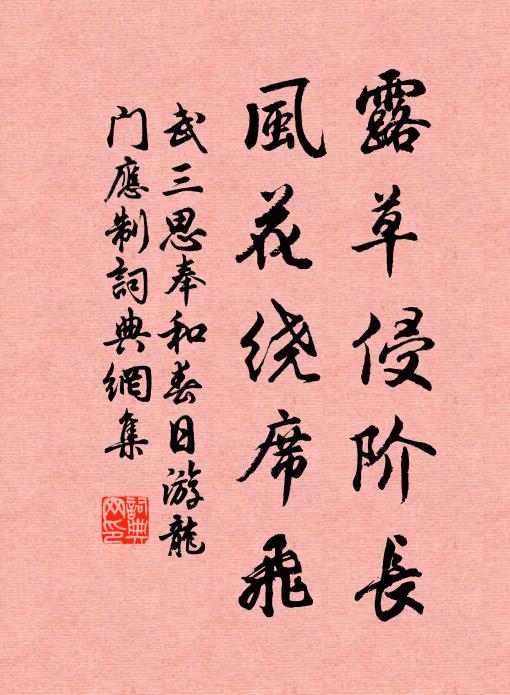 露草侵阶長
風花绕席飛
武三思奉和春日游龍
门應制詞典網集
詞典
网印